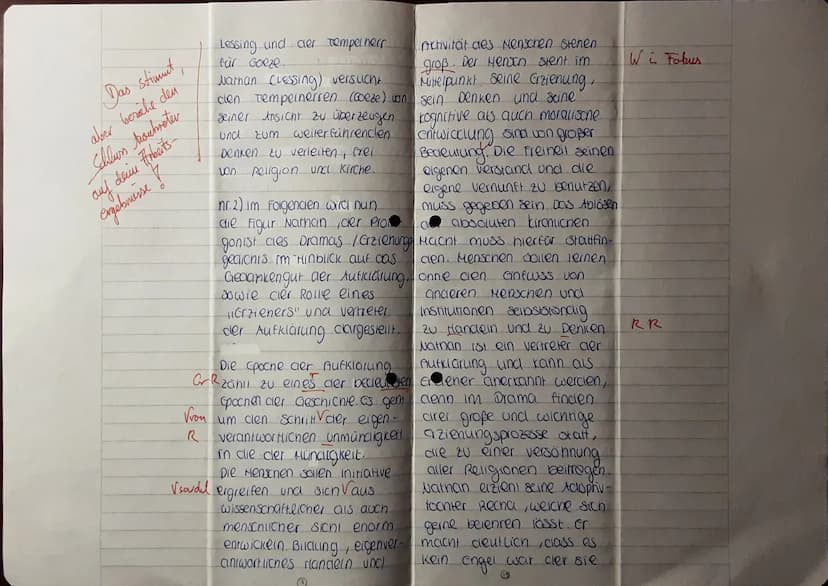 Lessing und der Tempelherr
für Goeze.
Nathan (Lessing) versucht
den Tempelherren (Goeze) von
seiner Ansicht zu überzeugen
und zum weiterführenden
Denken zu verleiten, frei
von Religion und Kirche.
Das stimmt,
aber beziehe den
Schluss konkreter
auf deine Arbeits-
ergebnisse!
nr.2) Im Folgenden wird nun
die Figur Nathan, der Prota
gonist des Dramas / Erziehungs
gedichts im Hinblick auf das
Gedankengut der Aufklärung,
sowie der Rolle eines
„Erziehers" und Vertreter
der Aufklärung dargestellt.
Die Epoche der Aufklärung
Gr R zählt zu eines r der bedeutenden
Epochen der Geschichte. Es geht
V von um den Schritt V der eigen-
R verantwortlichen Unmündigkeit
in die der Mündigkeit.
Die Menschen sollen Initiative
V sowohl ergreifen und sich V aus
wissenschaftlicher als auch
menschlicher Sicht enorm
entwickeln. Bildung, eigenver-
antwortliches Handeln und
Aktivität des Menschen stehen
groß. Der Mensch steht im W i Fokus
Mittelpunkt. Seine Erziehung,
sein Denken und seine
kognitive als auch moralische
Entwicklung sind von großer
Bedeutung. Die Freiheit seinen
eigenen Verstand und die
eigene Vernunft zu benutzen,
muss gegeben sein. Das Ablösen
absoluten kirchlichen
Macht muss hierfür stattfin-
den. Menschen sollen lernen
ohne den Einfluss von
anderen Menschen und
Institutionen selbstständig
zu Handeln und zu Denken R R
Nathan ist ein Vertreter der
Aufklärung und kann als
Erzieher anerkannt werden,
denn im Drama finden
drei große und wichtige
Erziehungsprozesse statt,
die zu einer Versöhnung
aller Religionen beitragen.
Nathan erzieht seine Adoptiv-
tochter Recha, welche sich
gerne belehren lässt. Er
macht deutlich, dass es
kein Engel war der sie